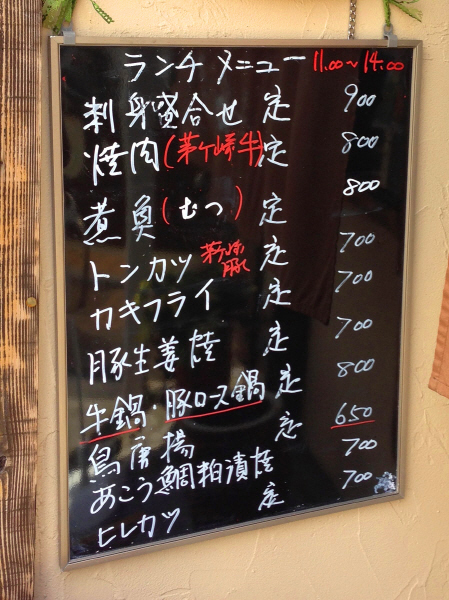 ランチメニュー 11.00~14.00
刺身盛合せ 定 900
焼肉(茅ケ崎牛)定 800
煮魚(むつ)定 800
トンカツ 豚 定 700
カキフライ 定 700
豚生姜焼 定 700
牛鍋・豚ロース鍋 定 800
鳥唐揚 定 650
あこう鯛粕漬焼 700
ヒレカツ 定 700